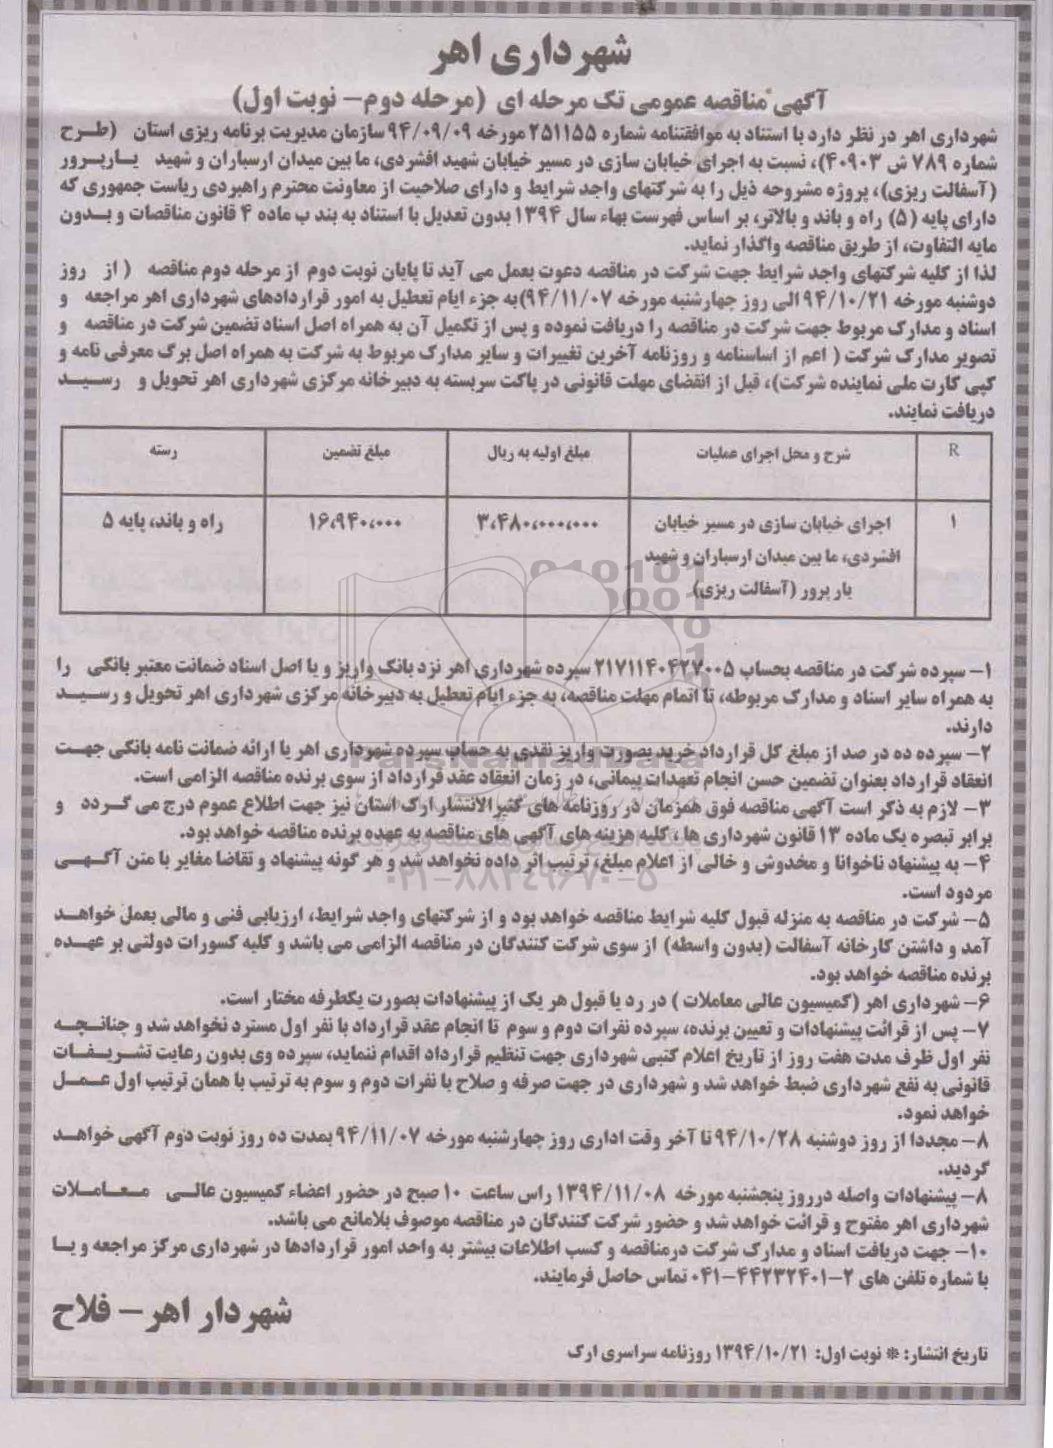 شهرداری اهر
آگهی مناقصه عمومی تک مرحله ای (مرحله دوم- نوبت اول)
شهرداری اهر در نظر دارد با استناد به موافقتنامه شماره ۲۵۱۱۵۵ مورخه ۹۴/۰۹/۰۹ سازمان مدیریت برنامه ریزی استان (طرح
شماره ۷۸۹ ش ۴۰۹۰۳)، نسبت به اجرای خیابان سازی در مسیر خیابان شهید افشردی، ما بین میدان ارسباران و شهید یارپرور
(آسفالت ریزی)، پروژه مشروحه ذیل را به شرکتهای واجد شرایط و دارای صلاحیت از معاونت محترم راهبردی ریاست جمهوری که
دارای پایه (۵) راه و باند و بالاتر، بر اساس فهرست بهاء سال ۱۳۹۴ بدون تعدیل با استناد به بند ب ماده ۴ قانون مناقصات و بدون
مابه التفاوت، از طریق مناقصه واگذار نماید.
لذا از کلیه شرکتهای واجد شرایط جهت شرکت در مناقصه دعوت بعمل می آید تا پایان نوبت دوم از مرحله دوم مناقصه (از روز
دوشنبه مورخه ۹۴/۱۰/۲۱ الی روز چهارشنبه مورخه ۹۴/۱۱/۰۷)به جزء ایام تعطیل به امور قراردادهای شهرداری اهر مراجعه و
اسناد و مدارک مربوط جهت شرکت در مناقصه را دریافت نموده و پس از تکمیل آن به همراه اصل اسناد تضمین شرکت در مناقصه و
تصویر مدارک شرکت ( اعم از اساسنامه و روزنامه آخرین تغییرات و سایر مدارک مربوط به شرکت به همراه اصل برگ معرفی نامه و
کپی کارت ملی نماینده شرکت)، قبل از انقضای مهلت قانونی در پاکت سربسته به دبیرخانه مرکزی شهرداری اهر تحویل و رسید
دریافت نمایند.
R شرح و محل اجرای عملیات مبلغ اولیه به ریال مبلغ تضمین رسته
۱ اجرای خیابان سازی در مسیر خیابان ۳،۴۸۰،۰۰۰،۰۰۰ ۱۶،۹۴۰،۰۰۰ راه و باند، پایه ۵
افشردی، ما بین میدان ارسباران و شهید
یار پرور (آسفالت ریزی)
۱- سپرده شرکت در مناقصه بحساب ۲۱۷۱۱۴۰۴۲۷۰۰۵ سپرده شهرداری اهر نزد بانک واریز و یا اصل اسناد ضمانت معتبر بانکی را
به همراه سایر اسناد و مدارک مربوطه، تا اتمام مهلت مناقصه، به جزء ایام تعطیل به دبیرخانه مرکزی شهرداری اهر تحویل و رسید
دارند.
۲- سپرده ده در صد از مبلغ کل قرارداد خرید بصورت واریز نقدی به حساب سپرده شهرداری اهر یا ارائه ضمانت نامه بانکی جهت
انعقاد قرارداد بعنوان تضمین حسن انجام تعهدات پیمانی، در زمان انعقاد عقد قرارداد از سوی برنده مناقصه الزامی است.
۳- لازم به ذکر است آگهی مناقصه فوق همزمان در روزنامه های کثیر الانتشار ارک استان نیز جهت اطلاع عموم درج می گردد و
برابر تبصره یک ماده ۱۳ قانون شهرداری ها ، کلیه هزینه های آگهی های مناقصه به عهده برنده مناقصه خواهد بود.
۴- به پیشنهاد ناخوانا و مخدوش و خالی از اعلام مبلغ، ترتیب اثر داده نخواهد شد و هر گونه پیشنهاد و تقاضا مغایر با متن آگهی
مردود است.
۵- شرکت در مناقصه به منزله قبول کلیه شرایط مناقصه خواهد بود و از شرکتهای واجد شرایط، ارزیابی فنی و مالی بعمل خواهد
آمد و داشتن کارخانه آسفالت (بدون واسطه) از سوی شرکت کنندگان در مناقصه الزامی می باشد و کلیه کسورات دولتی بر عهده
برنده مناقصه خواهد بود.
۶- شهرداری اهر (کمیسیون عالی معاملات ) در رد یا قبول هر یک از پیشنهادات بصورت یکطرفه مختار است.
۷- پس از قرائت پیشنهادات و تعیین برنده، سپرده نفرات دوم و سوم تا انجام عقد قرارداد با نفر اول مسترد نخواهد شد و چنانچه
نفر اول ظرف مدت هفت روز از تاریخ اعلام کتبی شهرداری جهت تنظیم قرارداد اقدام ننماید، سپرده وی بدون رعایت تشریفات
قانونی به نفع شهرداری ضبط خواهد شد و شهرداری در جهت صرفه و صلاح با نفرات دوم و سوم به ترتیب با همان ترتیب اول عمل
خواهد نمود.
۸- مجددا از روز دوشنبه ۹۴/۱۰/۲۸ تا آخر وقت اداری روز چهارشنبه مورخه ۹۴/۱۱/۰۷ بمدت ده روز نوبت دوم آگهی خواهد
گردید.
۸- پیشنهادات واصله درروز پنجشنبه مورخه ۱۳۹۴/۱۱/۰۸ راس ساعت ۱۰ صبح در حضور اعضاء کمیسیون عالی معاملات
شهرداری اهر مفتوح و قرائت خواهد شد و حضور شرکت کنندگان در مناقصه موصوف بلامانع می باشد.
۱۰- جهت دریافت اسناد و مدارک شرکت درمناقصه و کسب اطلاعات بیشتر به واحد امور قراردادها در شهرداری مرکز مراجعه و یا
با شماره تلفن های ۲-۴۴۲۳۲۴۰۱-۰۴۱ تماس حاصل فرمایند.
شهردار اهر - فلاح
تاریخ انتشار: * نوبت اول: ۱۳۹۴/۱۰/۲۱ روزنامه سراسری ارک
ParsNamadData
۰۲۱-۸۸۳۴۹۶۷۰-۵